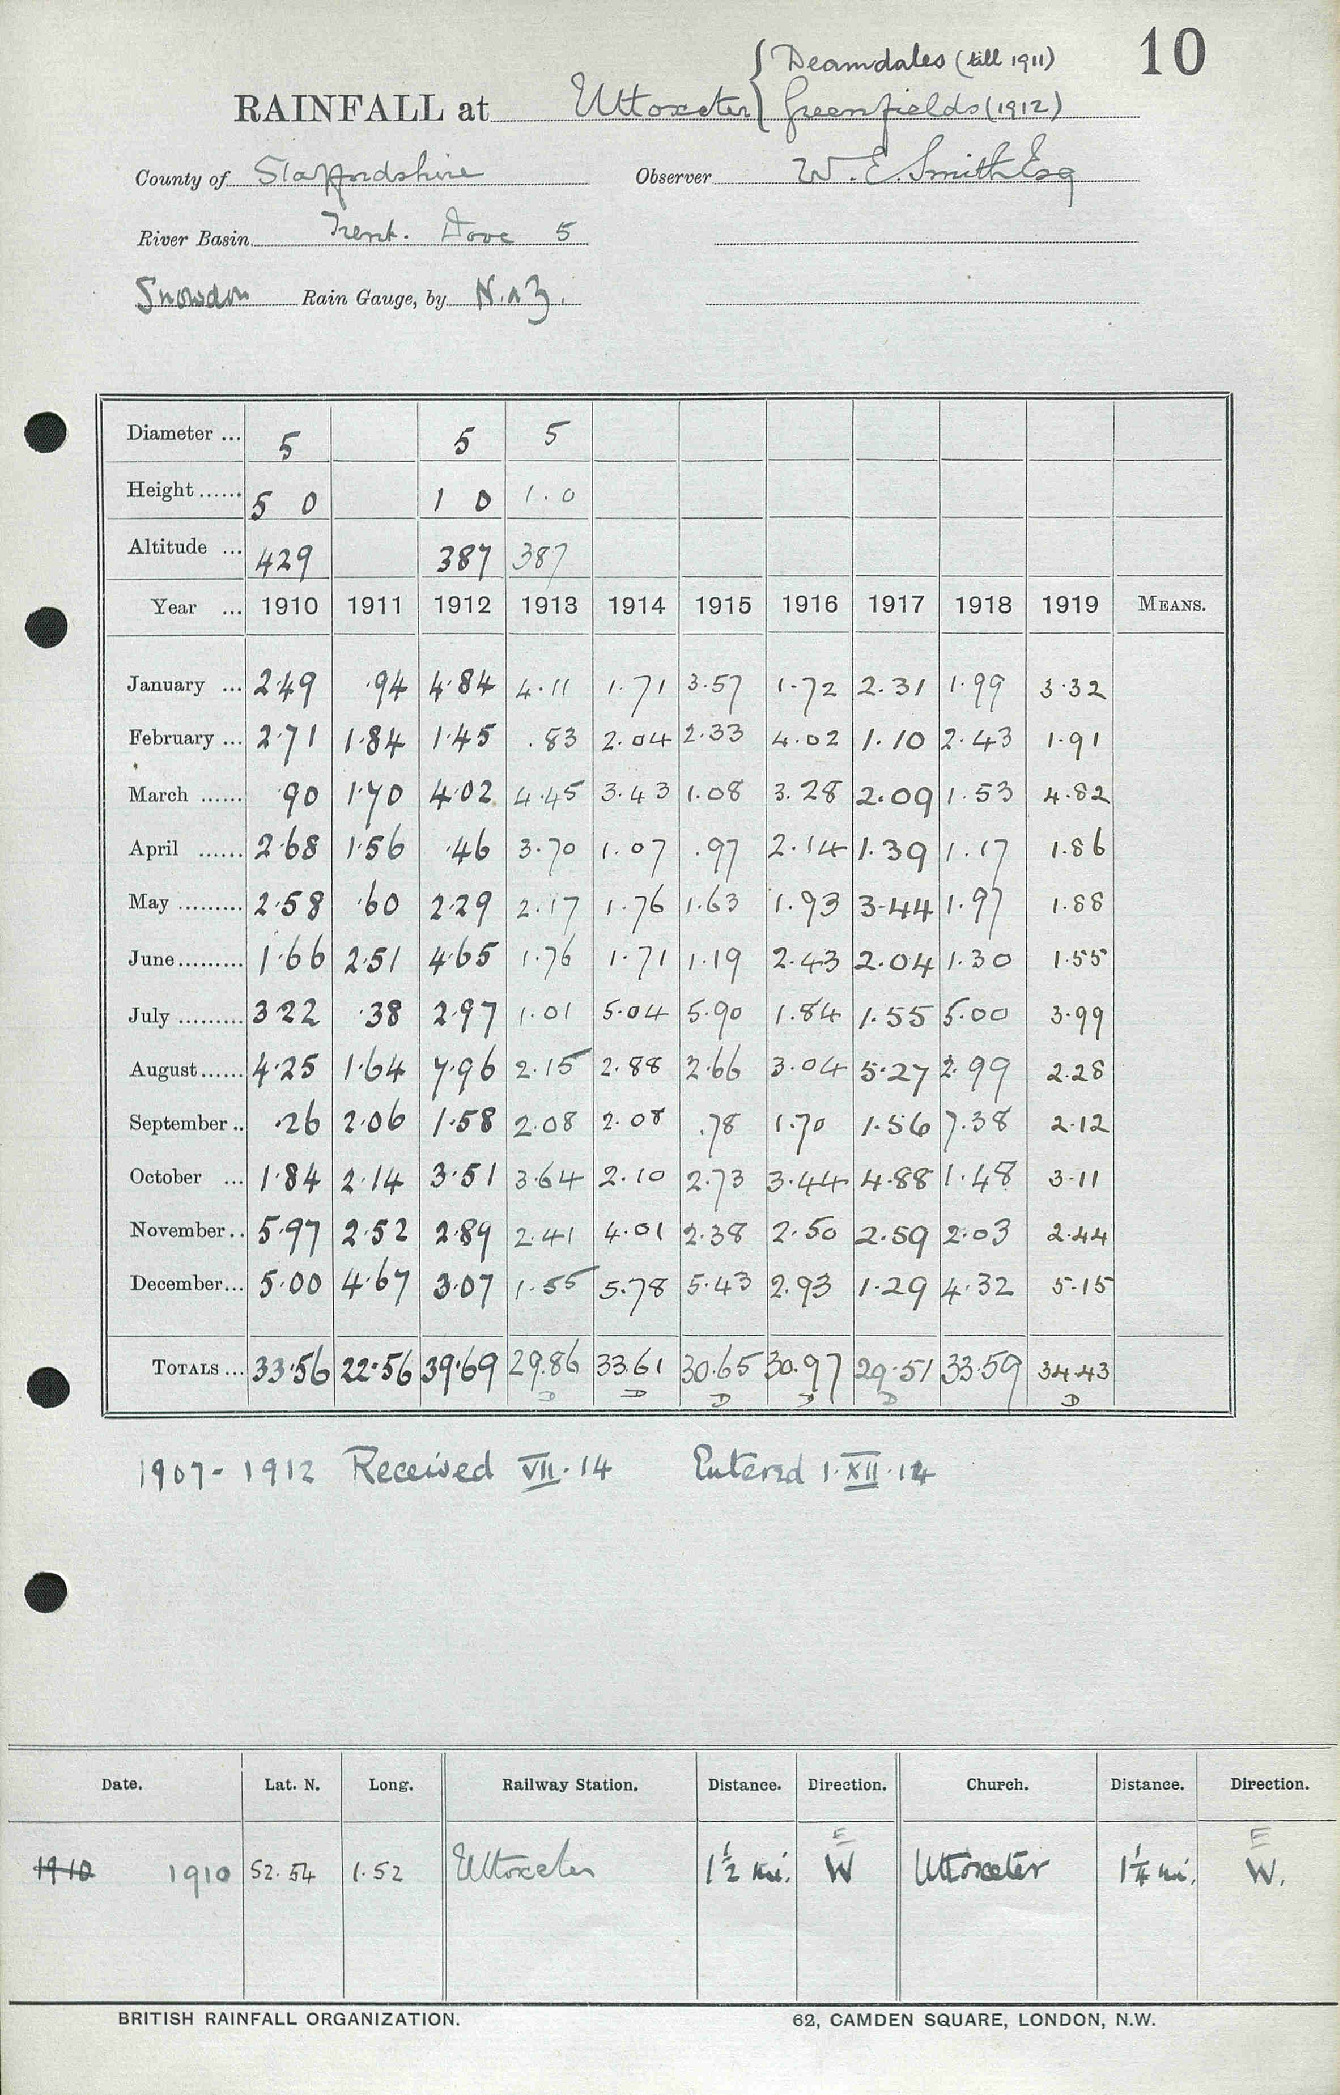 10
Deamdales (till 1911)
RAINFALL at Uttoxeter { Greenfields (1912)
County of Staffordshire Observer W. E. Smith Esq
River Basin Trent. Dove 5
Snowdon Rain Gauge, by N. & Z.
Diameter ... 5 5 5
Height ...... 5 0 1 0 1.0
Altitude ... 429 387 387
Year ... 1910 1911 1912 1913 1914 1915 1916 1917 1918 1919 MEANS.
January ... 2.49 .94 4.84 4.11 1.71 3.57 1.72 2.31 1.99 3.32
February ... 2.71 1.84 1.45 .83 2.04 2.33 4.02 1.10 2.43 1.91
March ...... .90 1.70 4.02 4.45 3.43 1.08 3.28 2.09 1.53 4.82
April ...... 2.68 1.56 .46 3.70 1.07 .97 2.14 1.39 1.17 1.86
May ......... 2.58 .60 2.29 2.17 1.76 1.63 1.93 3.44 1.97 1.88
June ......... 1.66 2.51 4.65 1.76 1.71 1.19 2.43 2.04 1.30 1.55
July ......... 3.22 .38 2.97 1.01 5.04 5.90 1.84 1.55 5.00 3.99
August ...... 4.25 1.64 7.96 2.15 2.88 2.66 3.04 5.27 2.99 2.28
September .. .26 2.06 1.58 2.08 2.08 .78 1.70 1.56 7.38 2.12
October ... 1.84 2.14 3.51 3.64 2.10 2.73 3.44 4.88 1.48 3.11
November .. 5.97 2.52 2.89 2.41 4.01 2.38 2.50 2.59 2.03 2.44
December ... 5.00 4.67 3.07 1.55 5.78 5.43 2.93 1.29 4.32 5.15
TOTALS ... 33.56 22.56 39.69 29.86 33.61 30.65 30.97 29.51 33.59 34.43
D D D D D D
1907-1912 Received VII.14 Entered 1.XII.14
Date. Lat. N. Long. Railway Station. Distance. Direction. Church. Distance. Direction.
E E
1910 1910 52.54 1.52 Uttoxeter 1½ mi. W Uttoxeter 1¼ mi. W.
BRITISH RAINFALL ORGANIZATION. 62, CAMDEN SQUARE, LONDON, N.W.